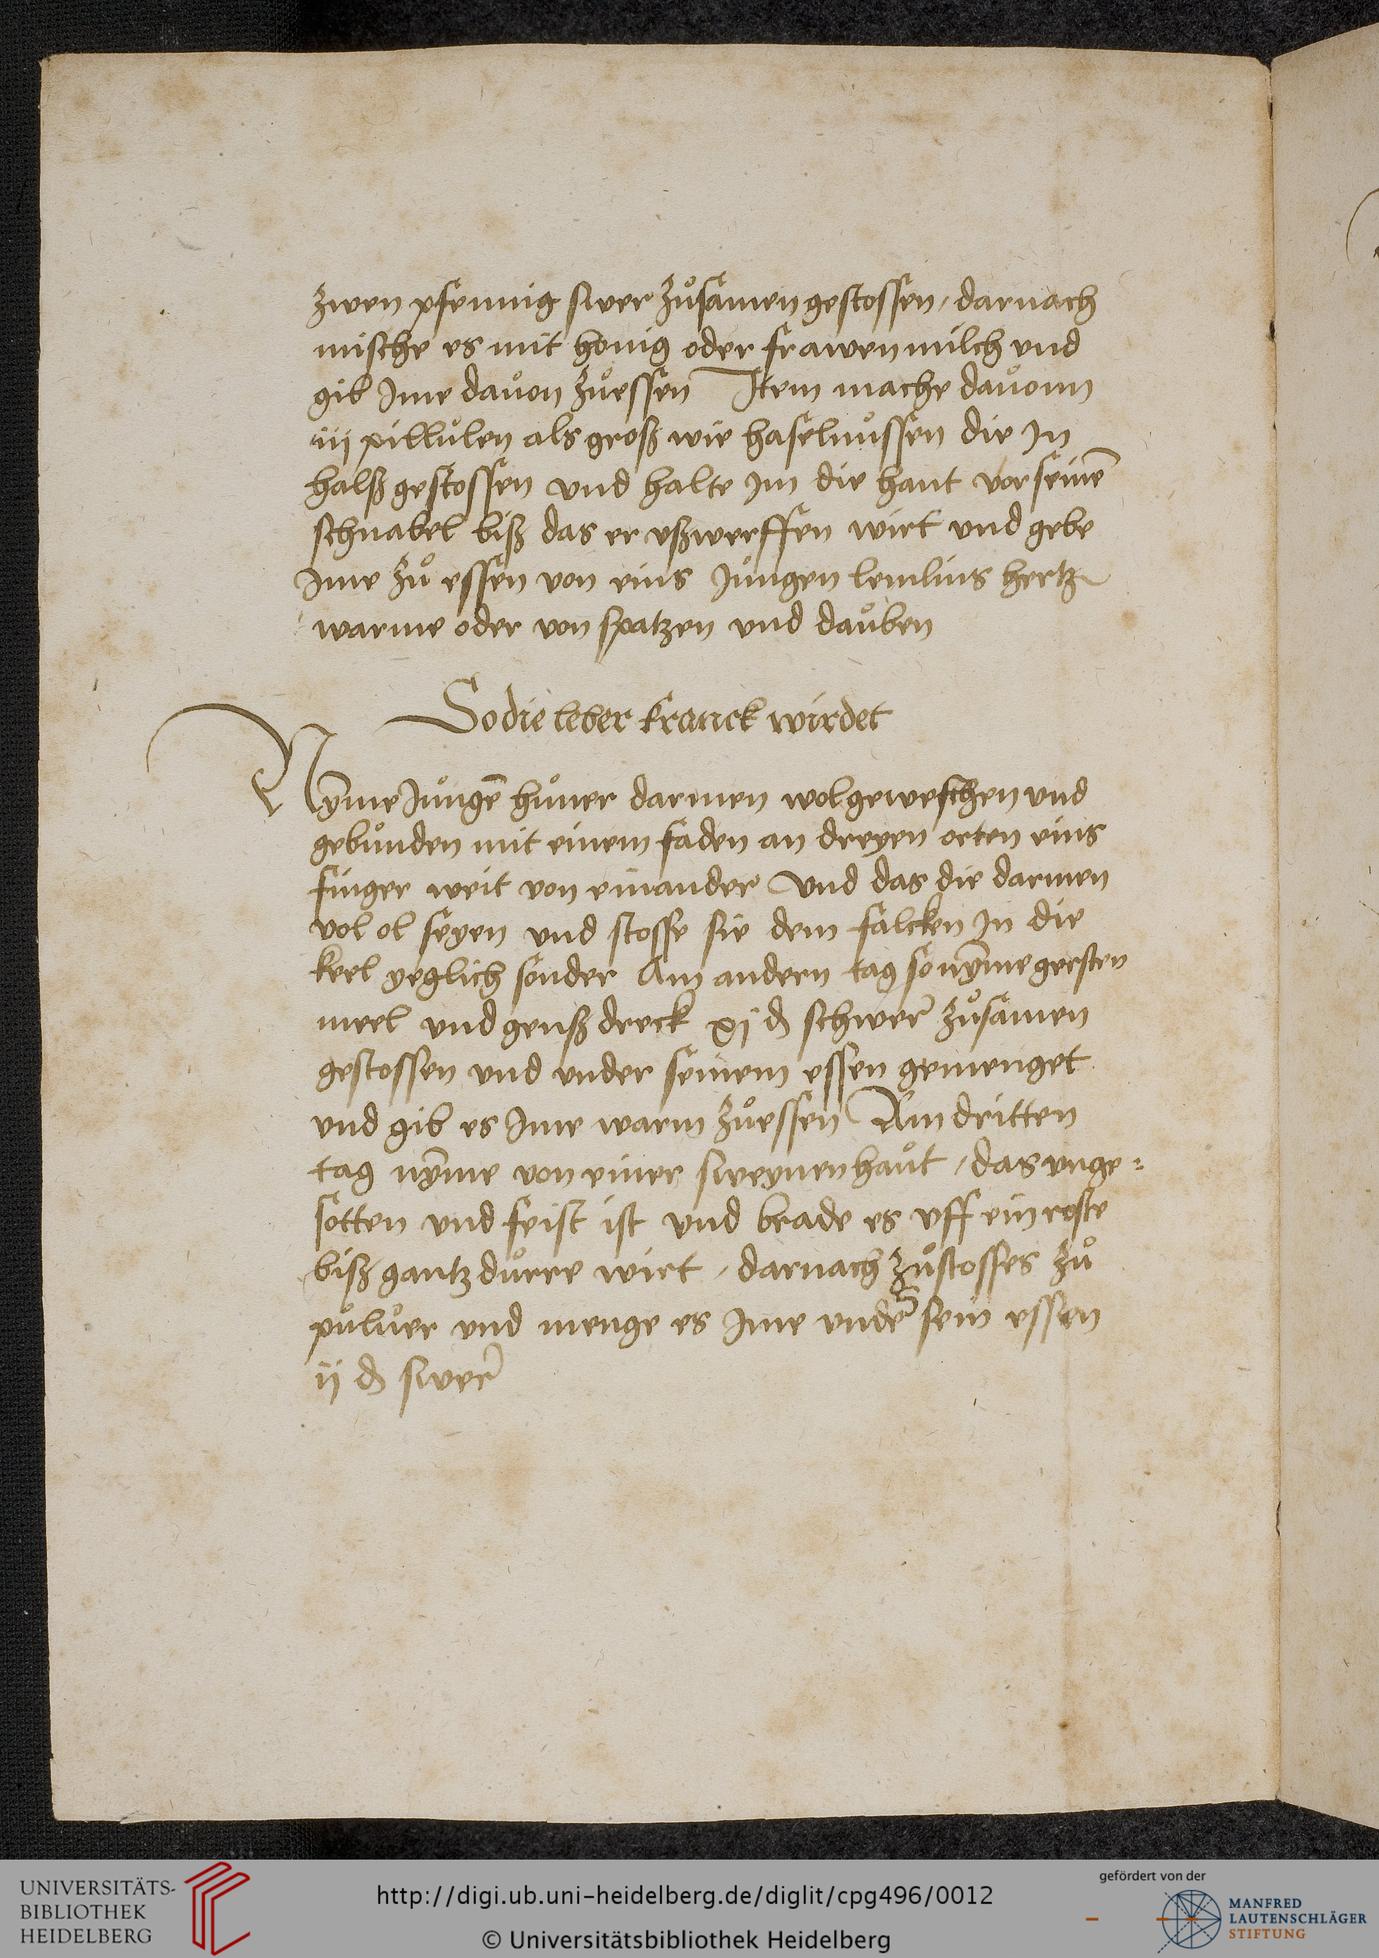 zwen pfennig swer zůsamen gestossen / darnach
mische es mit honig oder frawen milch vnd
gib Ime dauon zůessen Item mache dauonn
iij pillulen als groß wie haselnussen die In
halß gestossen vnd halte Im die hant vor seinē
schnabel biß das er vßwerffen wirt vnd gebe
Ime zů essen von eins Jungen lemlins hertz
warme oder von spatzen vnd dauben
So die leber kranck wirdet
Nȳme Jungē hůner darmen wol geweschen vnd
gebunden mit einem faden an dreyen orten eins
finger weit von einander Vnd das die darmen
vol ol seyen vnd stosse sie dem falcken In die
keel yeglich sonder Am andern tag so nȳme gersten
meel vnd genß dreck xj ₰ schwer zůsamen
gestossen vnd vnder seinem essen gemenget
vnd gib es Ime warm zůessen Am dritten
tag nȳme von einer sweynen haut / das vnge-
sotten vnd feist ist vnd brade es vff ein roste
biß gantz durre wirt / darnach zůstosses zů
puluer vnd menge es Ime vnder sein essen
ij ₰ swer
UNIVERSITÄTS-
BIBLIOTHEK
HEIDELBERG
http://digi.ub.uni-heidelberg.de/diglit/cpg496/0012
© Universitätsbibliothek Heidelberg
gefördert von der
MANFRED
LAUTENSCHLÄGER
STIFTUNG